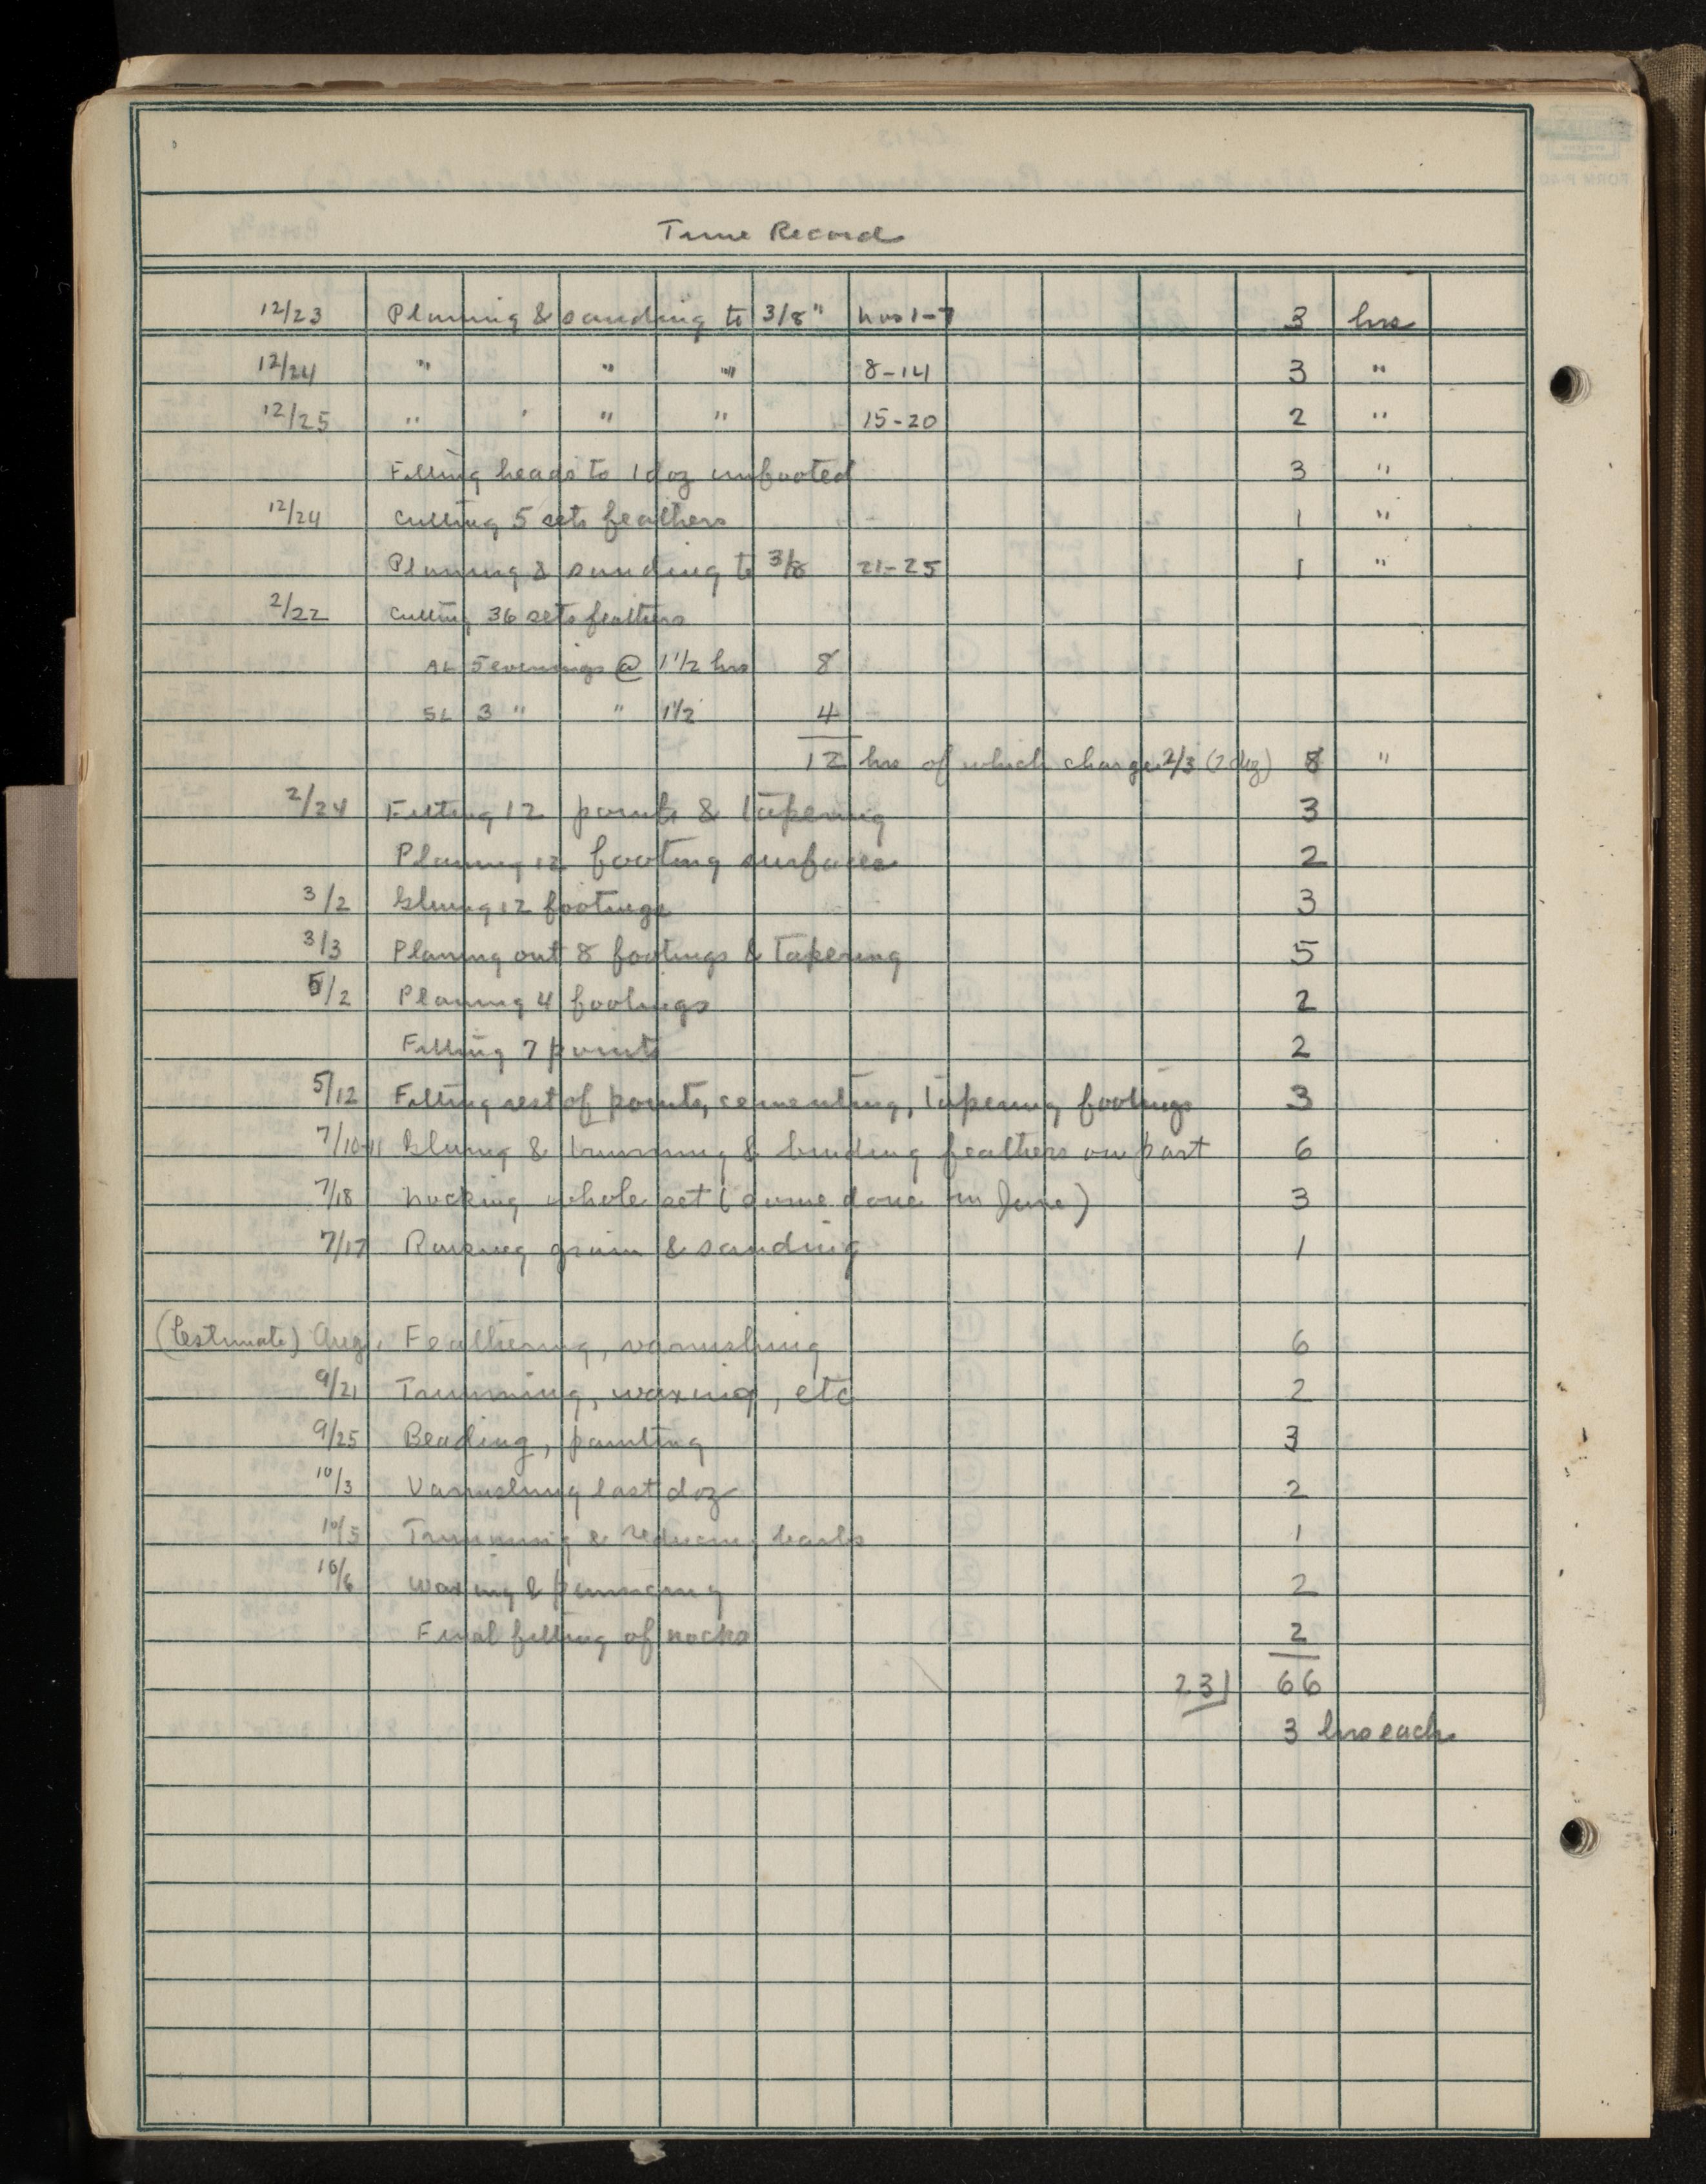 Time Record
12/23 Planing & sanding to 3/8" nos 1-7 3 hrs
12/24 " " " 8-14 3 "
12/25 " " " " 15-20 2 "
Fitting heads to 1 doz unfooted 3 "
12/24 Cutting 5 sets feathers 1 "
Planing & sanding to 3/8 21-25 1 "
2/22 Cutting 36 sets feathers
AL 5 evenings @ 1 1/2 hrs 8
SL 3 " " 1 1/2 4
12 hrs of which charge 2/3 (2 doz) 8 "
2/24 Fitting 12 points & tapering 3
Planing 12 footing surfaces 2
3/2 Gluing 12 footings 3
3/3 Planing out 8 footings & tapering 5
5/2 Planing 4 footings 2
Fitting 7 points 2
5/12 Fitting rest of points, cementing, tapering footings 3
7/10-11 Gluing & trimming & binding feathers on part 6
7/18 Nocking whole set (some done in June) 3
7/17 Raising grain & sanding 1
(Estimate) Aug. Feathering, varnishing 6
9/21 Trimming, waxing, etc 2
9/25 Beading, painting 3
10/3 Varnishing last doz 2
10/5 Trimming & reducing barbs 1
10/6 Waxing & pumicing 2
Final fitting of nocks 2
23) 66
3 hrs each